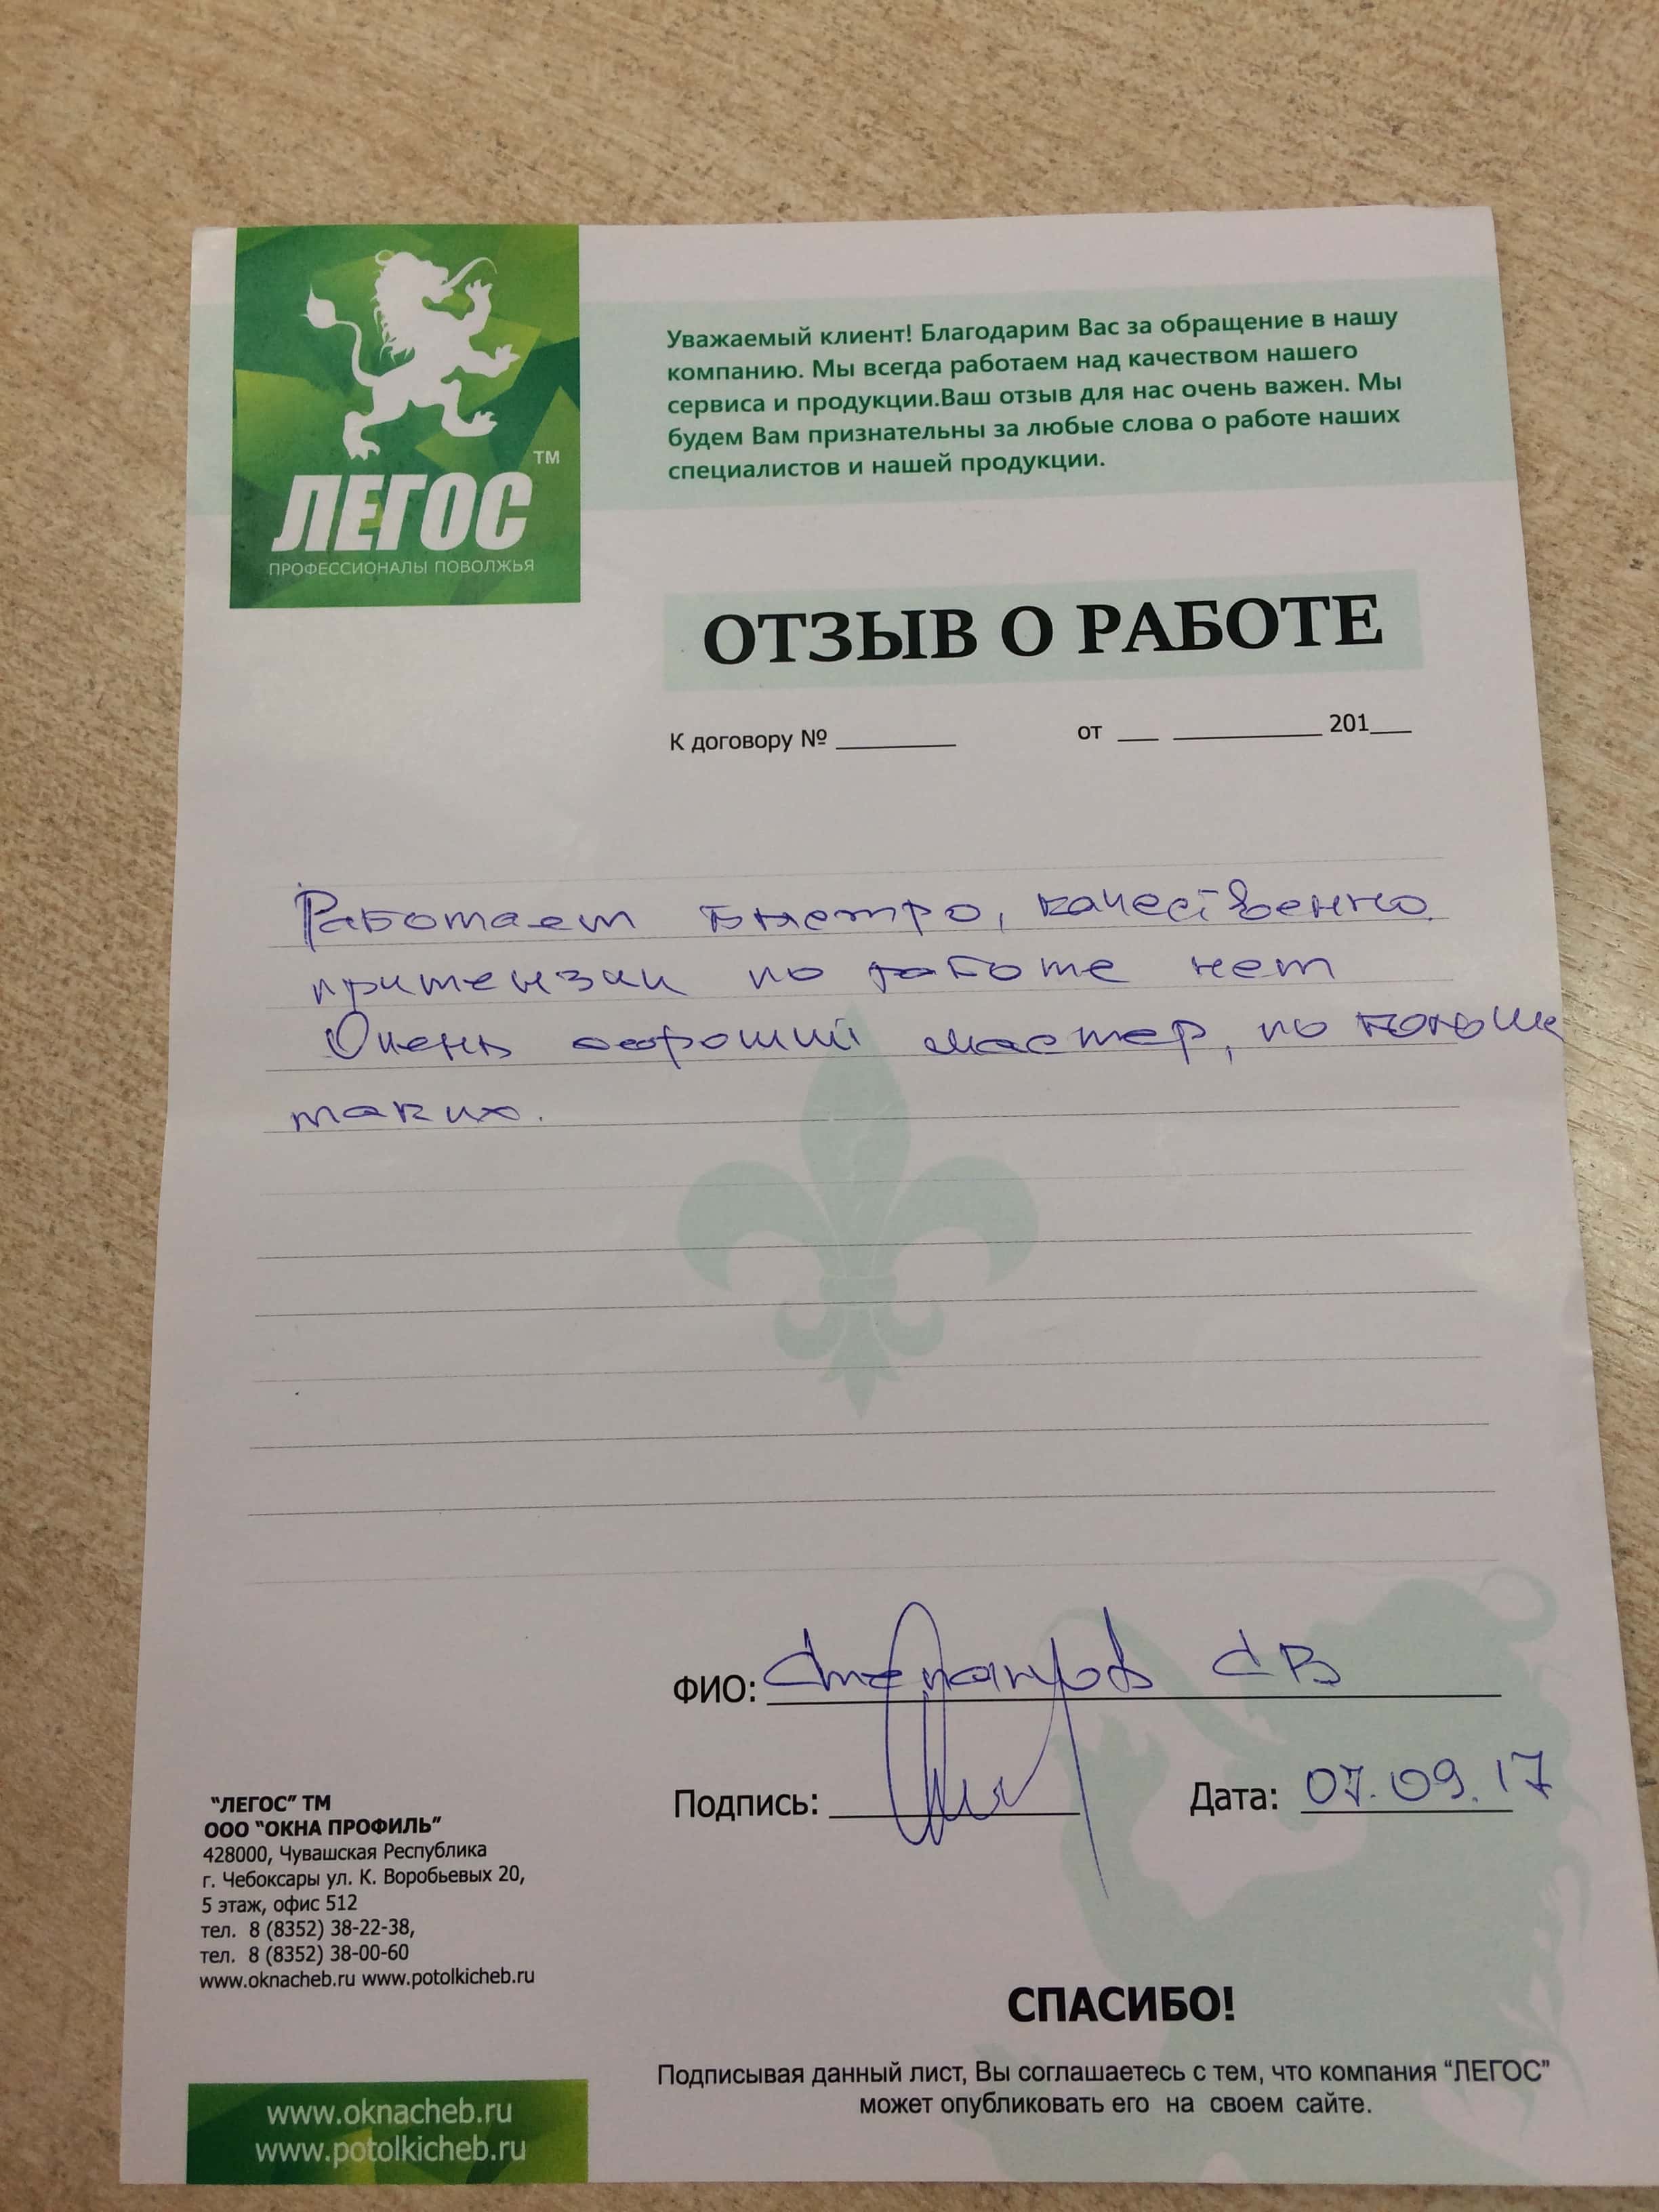 ЛЕГОС
TM
ПРОФЕССИОНАЛЫ ПОВОЛЖЬЯ
Уважаемый клиент! Благодарим Вас за обращение в нашу
компанию. Мы всегда работаем над качеством нашего
сервиса и продукции.Ваш отзыв для нас очень важен. Мы
будем Вам признательны за любые слова о работе наших
специалистов и нашей продукции.
ОТЗЫВ О РАБОТЕ
К договору № ________ от ___ __________ 201___
Работает быстро, качественно.
притензии по работе нет
Очень хороший мастер, по больше
таких.
ФИО: Степанов СВ
Подпись: Дата: 07.09.17
"ЛЕГОС" ТМ
ООО "ОКНА ПРОФИЛЬ"
428000, Чувашская Республика
г. Чебоксары ул. К. Воробьевых 20,
5 этаж, офис 512
тел. 8 (8352) 38-22-38,
тел. 8 (8352) 38-00-60
www.oknacheb.ru www.potolkicheb.ru
СПАСИБО!
Подписывая данный лист, Вы соглашаетесь с тем, что компания "ЛЕГОС"
может опубликовать его на своем сайте.
www.oknacheb.ru
www.potolkicheb.ru